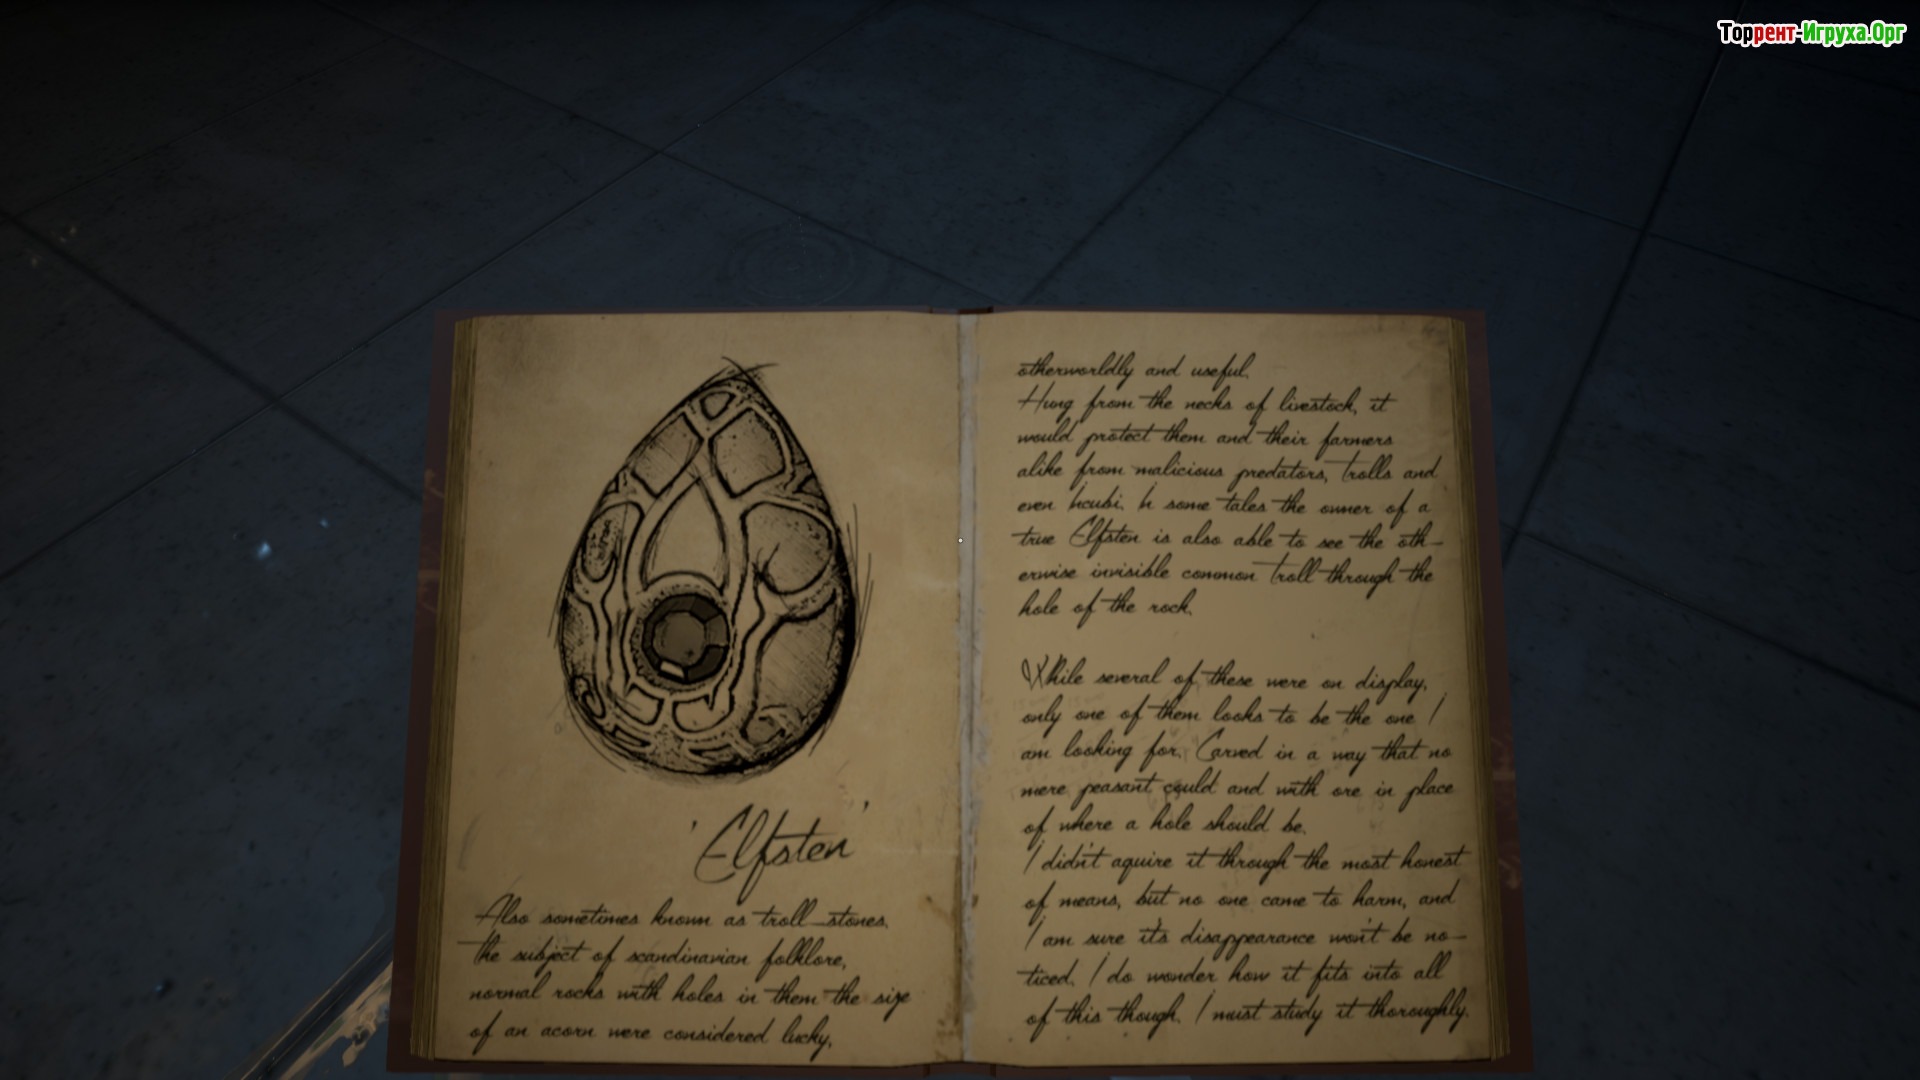 Торрент-Игруха.Орг
'Elfsten'
Also sometimes known as troll-stones.
the subject of scandinavian folklore,
normal rocks with holes in them the size
of an acorn were considered lucky,
otherworldly and useful.
Hung from the necks of livestock, it
would protect them and their farmers
alike from malicious predators, trolls and
even Incubi. In some tales the owner of a
true Elfsten is also able to see the oth-
erwise invisible common troll through the
hole of the rock.
While several of these were on display,
only one of them looks to be the one I
am looking for. Carved in a way that no
mere peasant could and with ore in place
of where a hole should be.
I didn't aquire it through the most honest
of means, but no one came to harm, and
I am sure it's disappearance won't be no-
ticed. I do wonder how it fits into all
of this though. I must study it thoroughly.